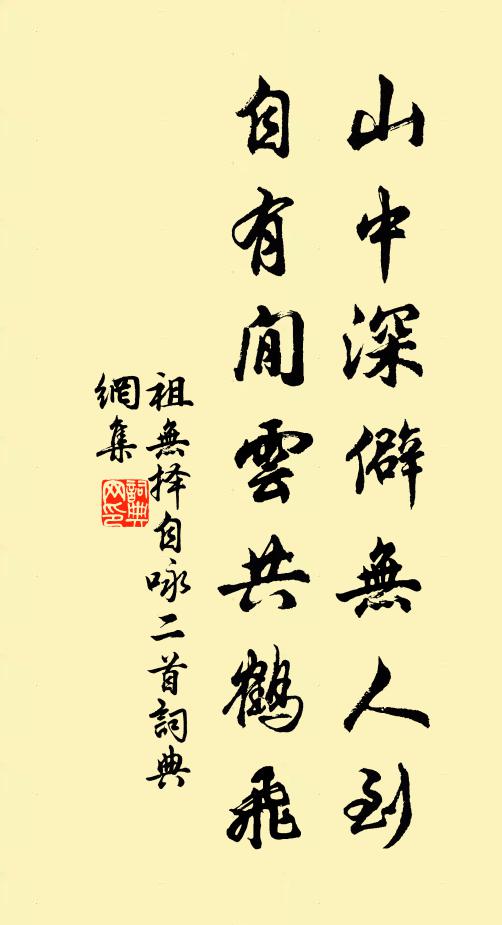 山中深僻無人到
自有閒雲共鶴飛
祖無择自咏二首詞典
網集
詞典網印